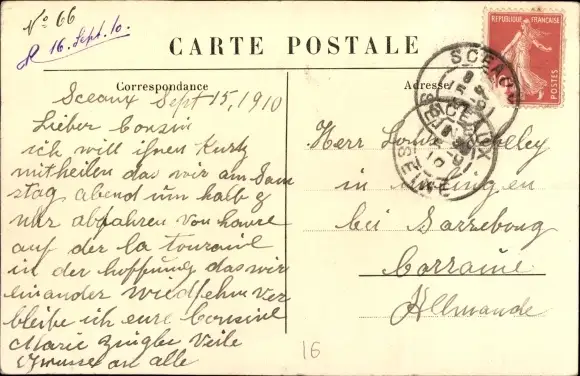 No 66
R 16. Sept. 10.
CARTE POSTALE
Correspondance
Adresse
RÉPUBLIQUE FRANÇAISE
POSTES
SCEAUX
SCEAUX
SEINE
Sceaux Sept 15, 1910
Lieber Cousin
ich will ihnen Kurtz
mittheilen das wir am Sam
stag abend um halb 9
uhr abfahren von hause
auf der la touraine
in der hoffnung das wir
einander wiedsehen ver
bleibe ich eure Cousine
Marie Zingler Veile
Grusse an alle
Herr Louis
in
bei Sarrebourg
Lorraine
Allmande
16